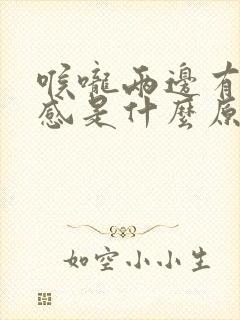 喉嚨兩邊有
感是什麼原
如空小小生